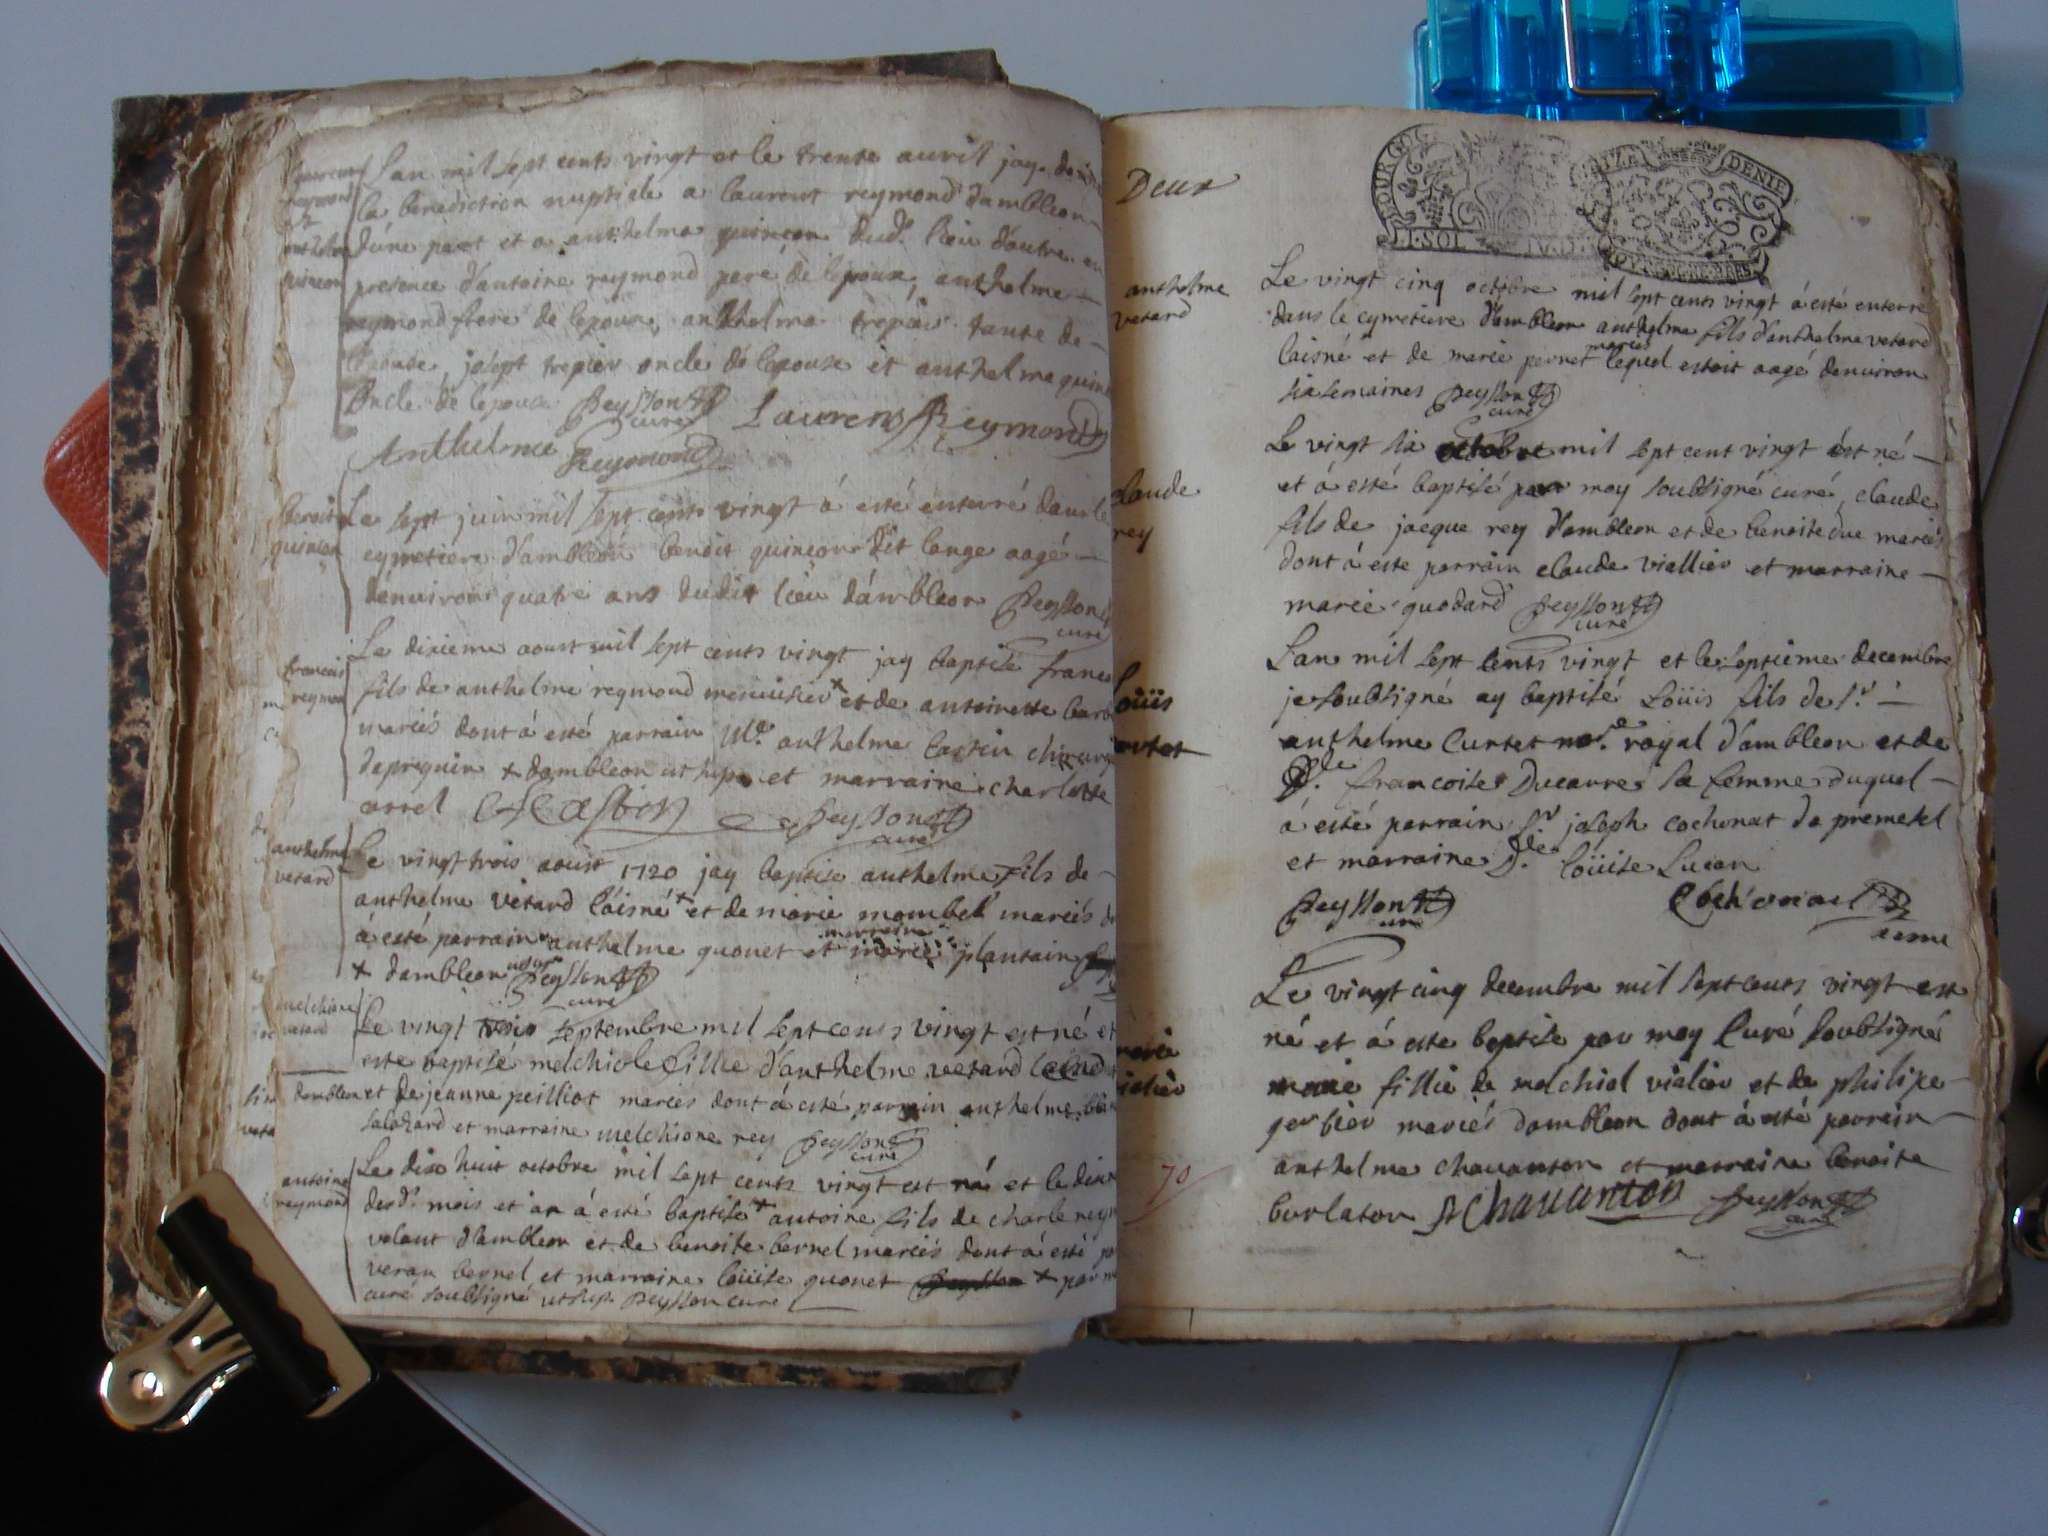 Lan mil sept cents vingt et le trente auril jay
la benediction nuptiale a laurent reymond dambleon
dune part et a anthelma quinçon dud.t lieu dautre en
presence dantoine reymond pere de lepoux, anthelme
reymond frere de lepoux, anthelma trepier tante de
lepouse, joseph trepier oncle de lepouse et anthelme
oncle de lepoux Peysson curé Laurens Reymond
Anthelme Reymond
benoit
quinçon
Le sept juin mil sept cents vingt á esté enterré dans le
cymetiere d'ambleon benoit quinçon dit lange aagé
denuiron quatre ans dudit lieu dámbleon Peysson
curé
francois
reymon
Le dixieme aoust mil sept cents vingt jay baptisé
fils de anthelme reymond menuisier + et de antoinette
mariés dont á esté parrain M.e anthelme Castin
+ dambleon ut supra et marraine charlotte
carrel Peysson
curé
anthelme
vetard
Le vingt trois aoust 1720 jay baptise anthelme fils de
anthelme vetard laisné + et de marie mariés
á esté parrain anthelme quonet et marraine marie plantain
+ dambleon Peysson
curé
melchione
vetard
Le vingt trois septembre mil sept cents vingt est né et
este baptisé fille d'anthelme vetard
dambleon et de jeanne peilliot mariés dont á esté parrain anthelme
et marraine melchione rey Peysson
curé
antoine
reymond
Le dix huit octobre mil sept cents vingt est né et le
dud.t mois et an á esté baptisé + antoine fils de charle
d'ambleon et de benoite bernel mariés dont á esté
veran bernel et marraine loüise quonet Peysson + par
curé soubsigné ut sup. Peysson curé
Deux
BOURGO
DENIE
SOL
anthelme
vetard
Le vingt cinq octobre mil sept cents vingt á esté enterré
dans le cymetiere d'ambleon anthelme fils d'anthelme vetard
laisné et de marie pernet mariés lequel estoit aagé denuiron
six semaines Peysson
curé
claude
rey
Le vingt six octobre mil sept cent vingt est né
et á esté baptisé par moy soubsigné curé, claude
fils de jacque rey d'ambleon et de benoite mariés
dont á este parrain claude viallier et marraine
marie guodard Peysson
curé
Loüis
Lan mil sept cents vingt et le septieme decembre
je soubsigné ay baptisé Loüis fils de s.r
anthelme Curtet royal d'ambleon et de
D.le francoise Ducarre sa femme duquel
á esté parrain s.r joseph cochonat de premeisel
et marraine D.le loüise Luçan
Peysson
curé
Cochonat
Le vingt cinq decembre mil sept cents vingt est
né et á este baptise par moy Curé soubsigné
marie fillie de melchiol vialier et de philipe
gerbier mariés dambleon dont á esté parrain
anthelme chauanton et marraine benoite
burlaton A Chauanton Peysson
curé
70